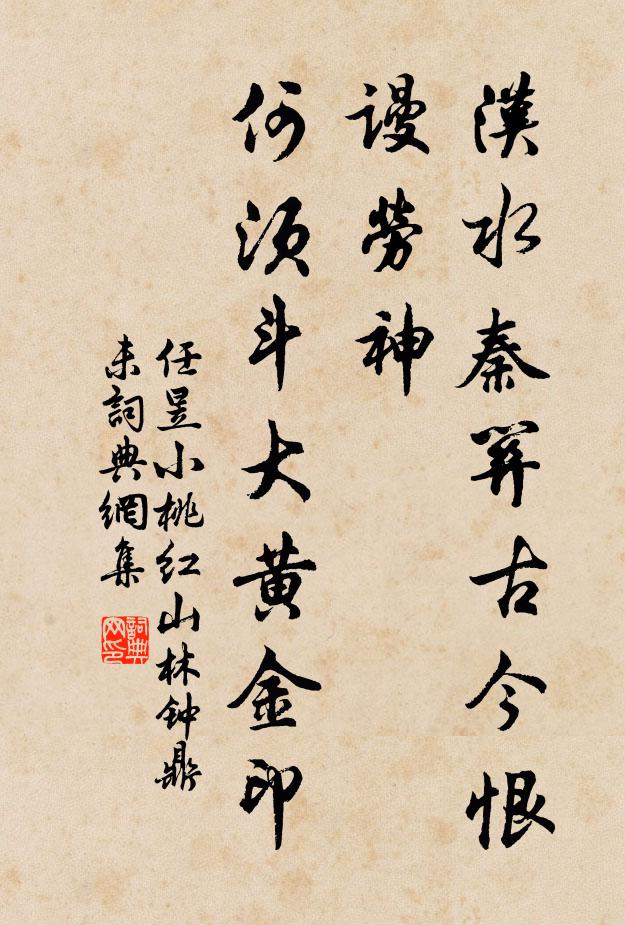 漢水秦關古今恨
謾勞神
何須斗大黃金印
任昱小桃紅山林钟鼎
未詞典網集
詞典网印